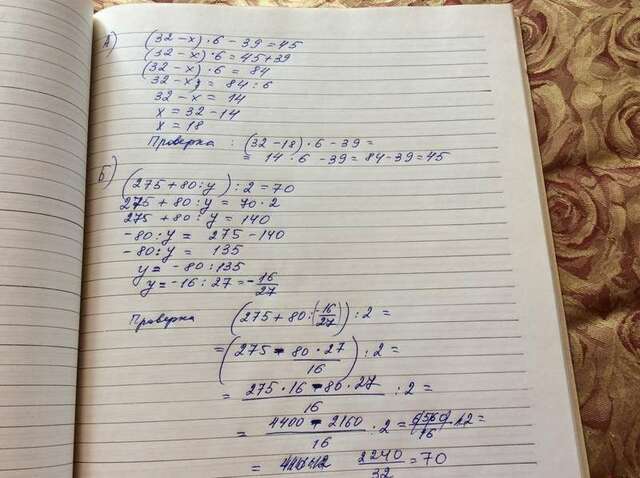 А) (32 - x) · 6 - 39 = 45
(32 - x) · 6 = 45 + 39
(32 - x) · 6 = 84
32 - x = 84 : 6
32 - x = 14
x = 32 - 14
x = 18
Проверка : (32 - 18) · 6 - 39 =
= 14 · 6 - 39 = 84 - 39 = 45
Б) (275 + 80 : y) : 2 = 70
275 + 80 : y = 70 · 2
275 + 80 : y = 140
-80 : y = 275 - 140
-80 : y = 135
y = -80 : 135
y = -16 : 27 = -16/27
Проверка (275 + 80 : (-16/27)) : 2 =
= (275 - 80 · 27/16) : 2 =
= 275 · 16 - 80 · 27/16 : 2 =
= 4400 - 2160/16 : 2 = 6560/16 · 12 =
= 2240/32 = 70